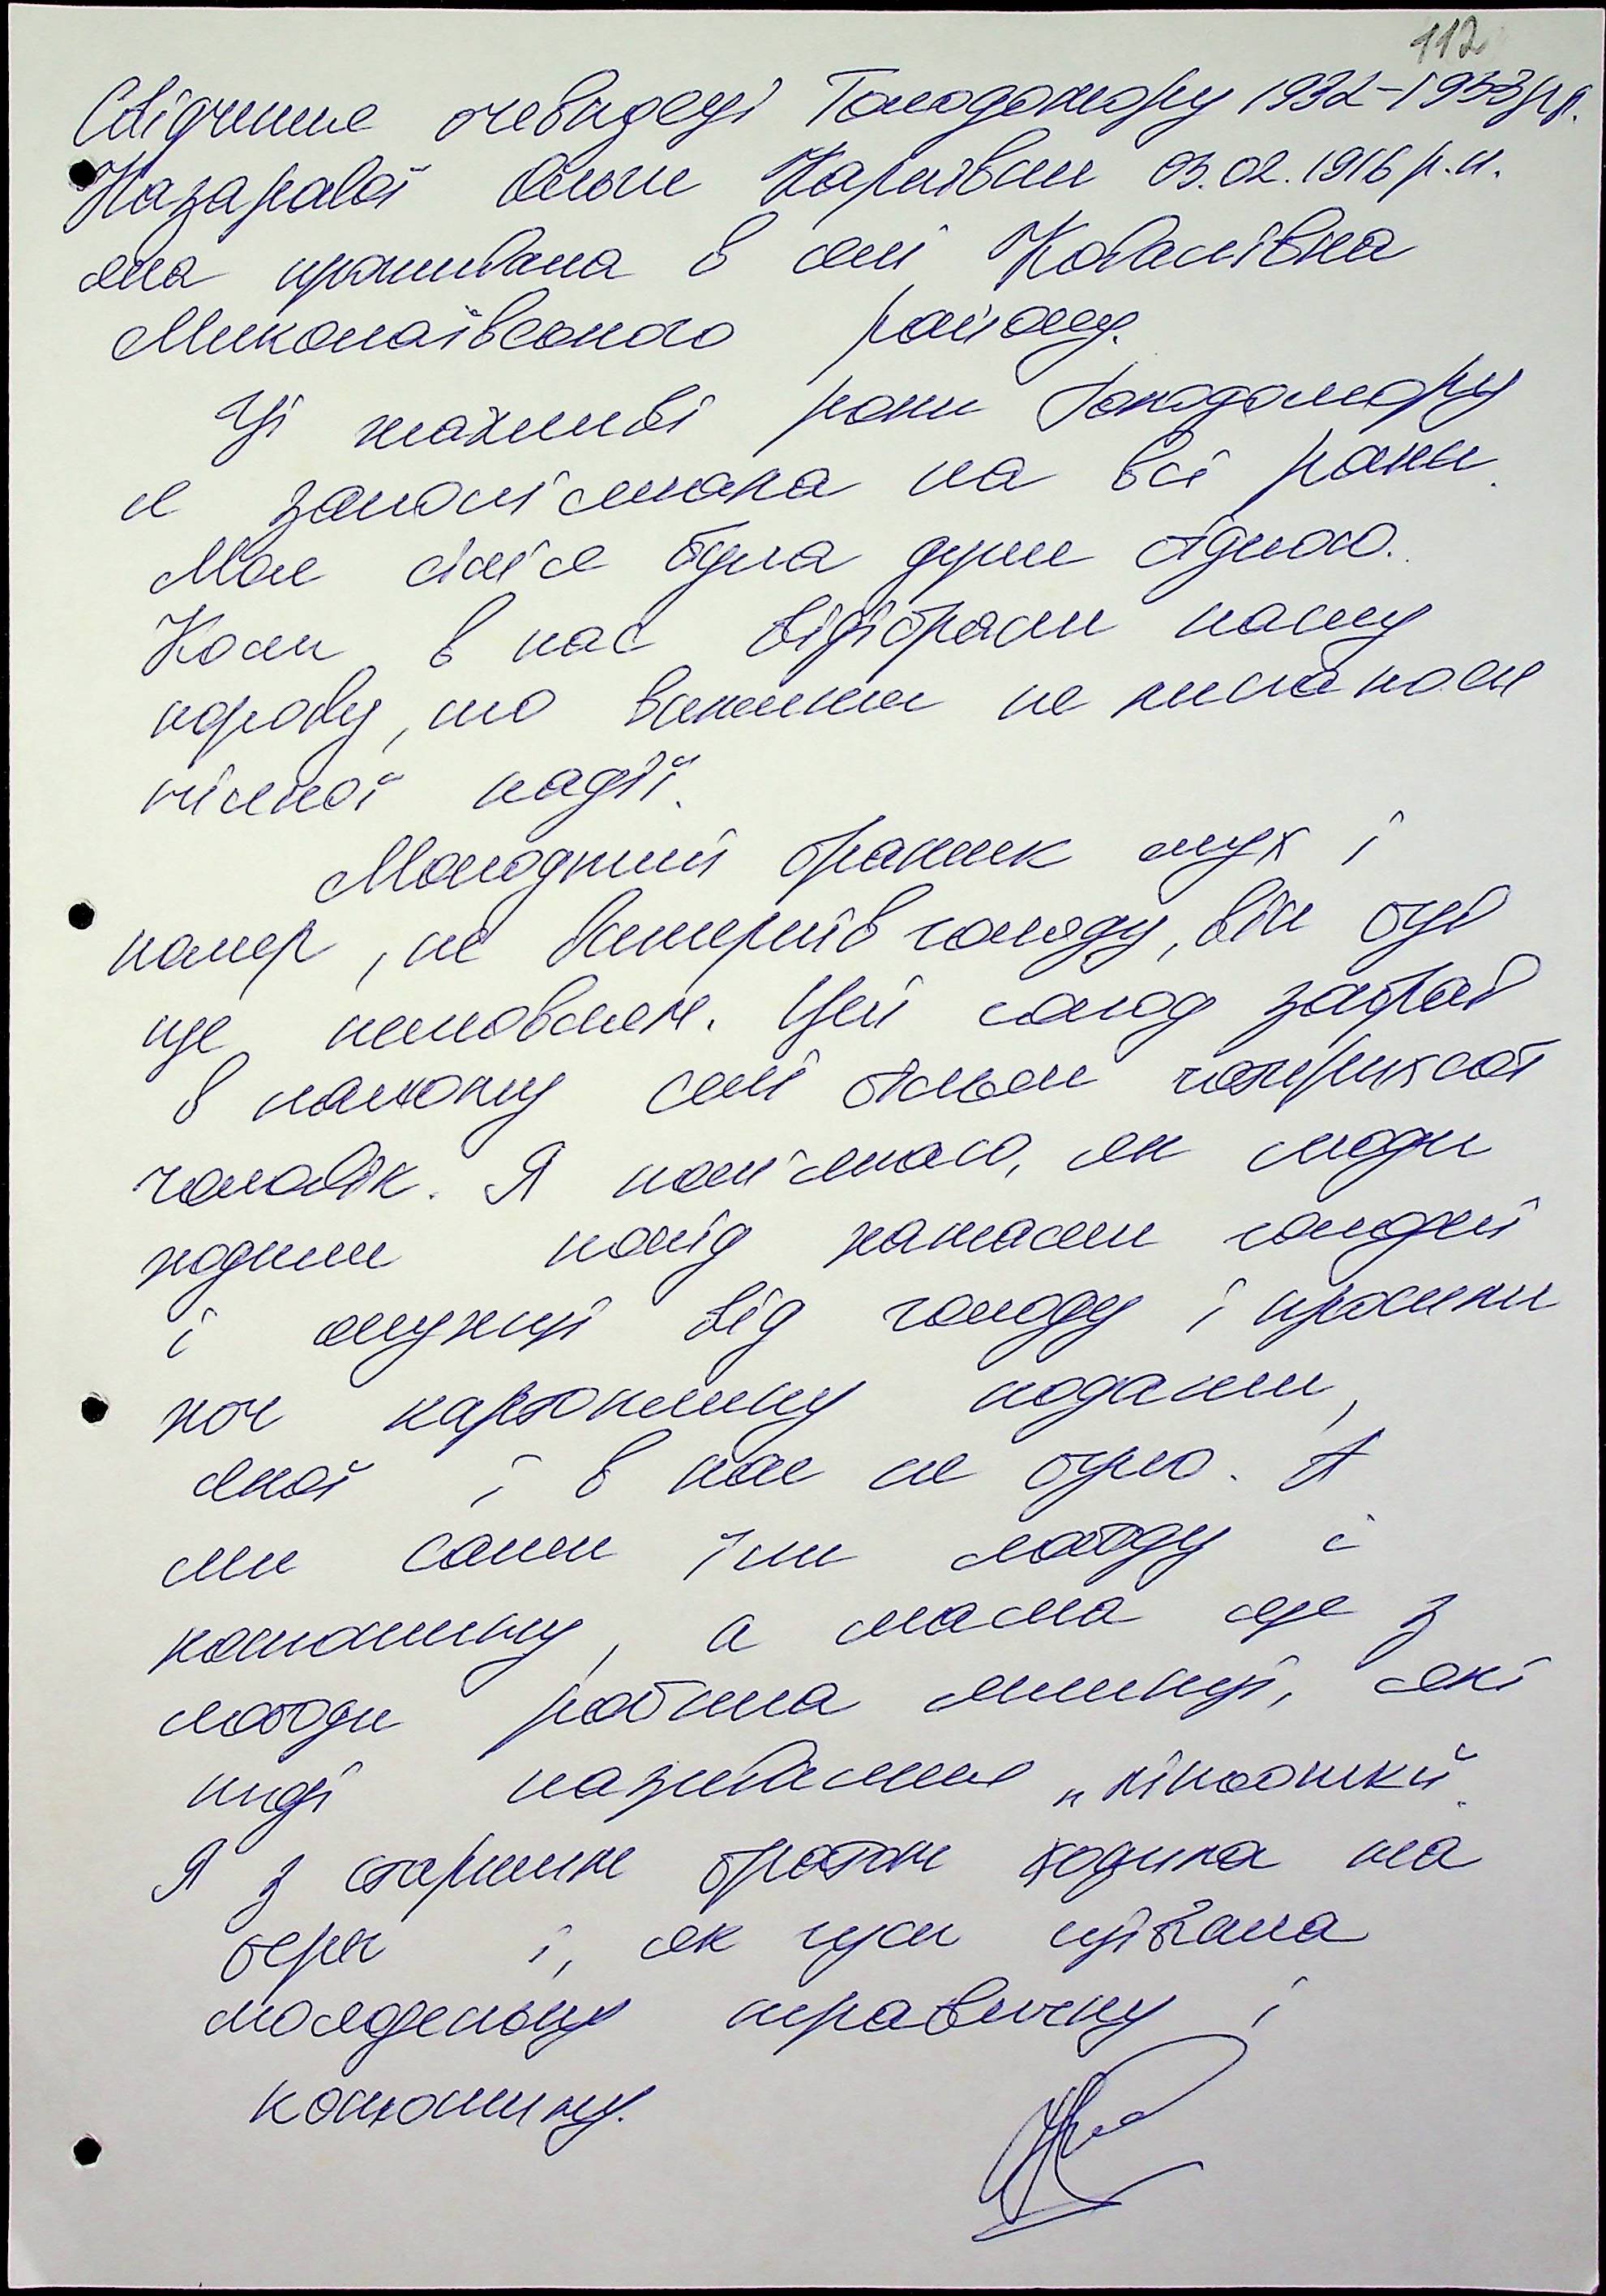 112
Свідчення очевидеці Голодомору 1932-1933 рр.
Назарової Ольги Карпівни 03.02.1916 р.н.
яка проживала в селі Ковалівка
Миколаївського району.
Ці жахливі роки Голодомору
я запам'ятала на всі роки.
Моя сім'я була дуже бідною.
Коли в нас відібрали нашу
корову, то вижити не лишилося
ніякої надії.
Молодший братик пух і
помер, не витерпів голоду, він був
ще немовлям. Цей голод забрав
в нашому селі більш чотирьохсот
чоловік. Я пам'ятаю, як люди
ходили попід хатами голодні
і опухші від голоду і просили
хоч картоплину подати,
якої і в нас не було. А
ми самі їли лободу і
калачики, а мама ще з
лободи робила млинці, які
тоді називалися „ліпошкі".
Я з старшим братом ходила на
берег і, як гуси щипала
молоденьку травичку і